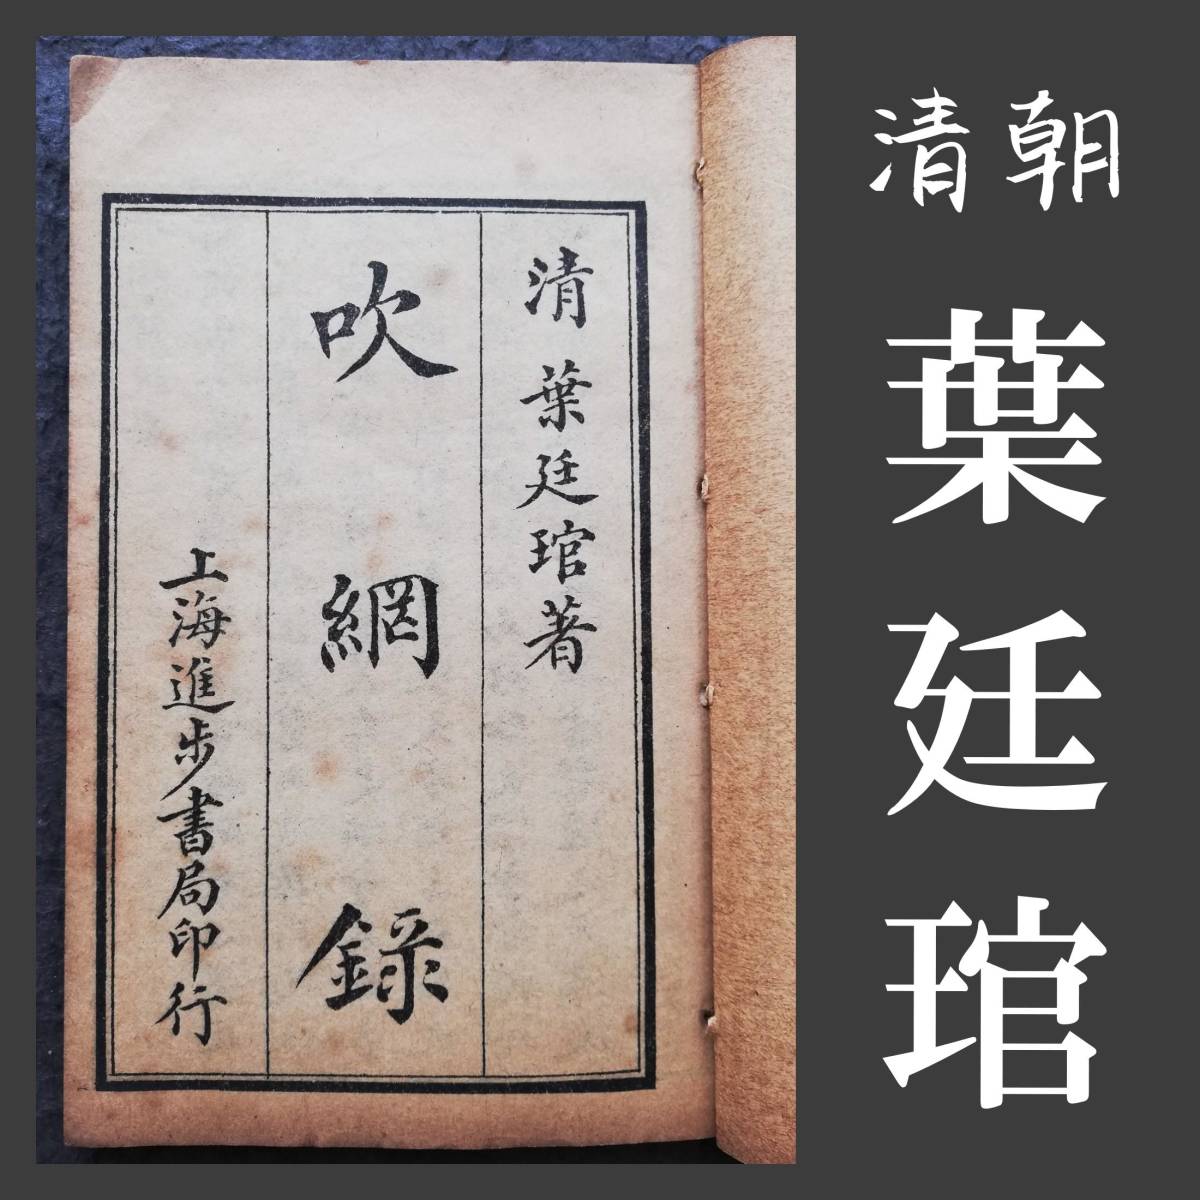 清葉廷琯著
吹網錄
上海進步書局印行
清朝
葉廷琯